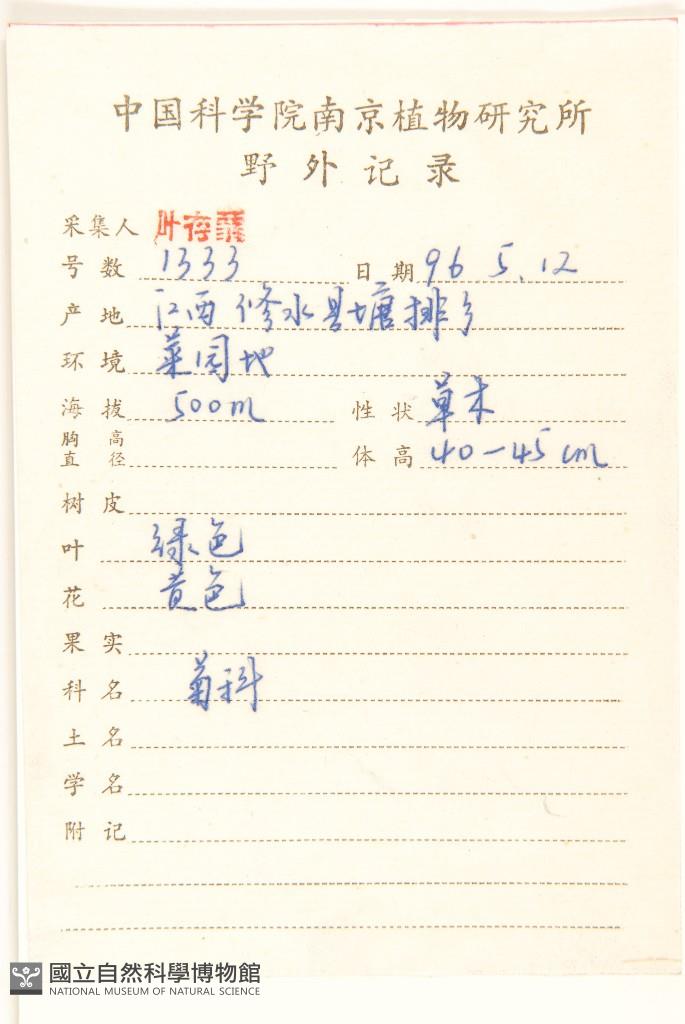 中国科学院南京植物研究所
野外记录
采集人 叶存粟
号数 1333 日期 96 5.12
产地 江西修水县塘排乡
环境 菜园地
海拔 500m 性状 草本
胸高直径 体高 40-45cm
树皮
叶 绿色
花 黄色
果实
科名 菊科
土名
学名
附记
國立自然科學博物館
NATIONAL MUSEUM OF NATURAL SCIENCE